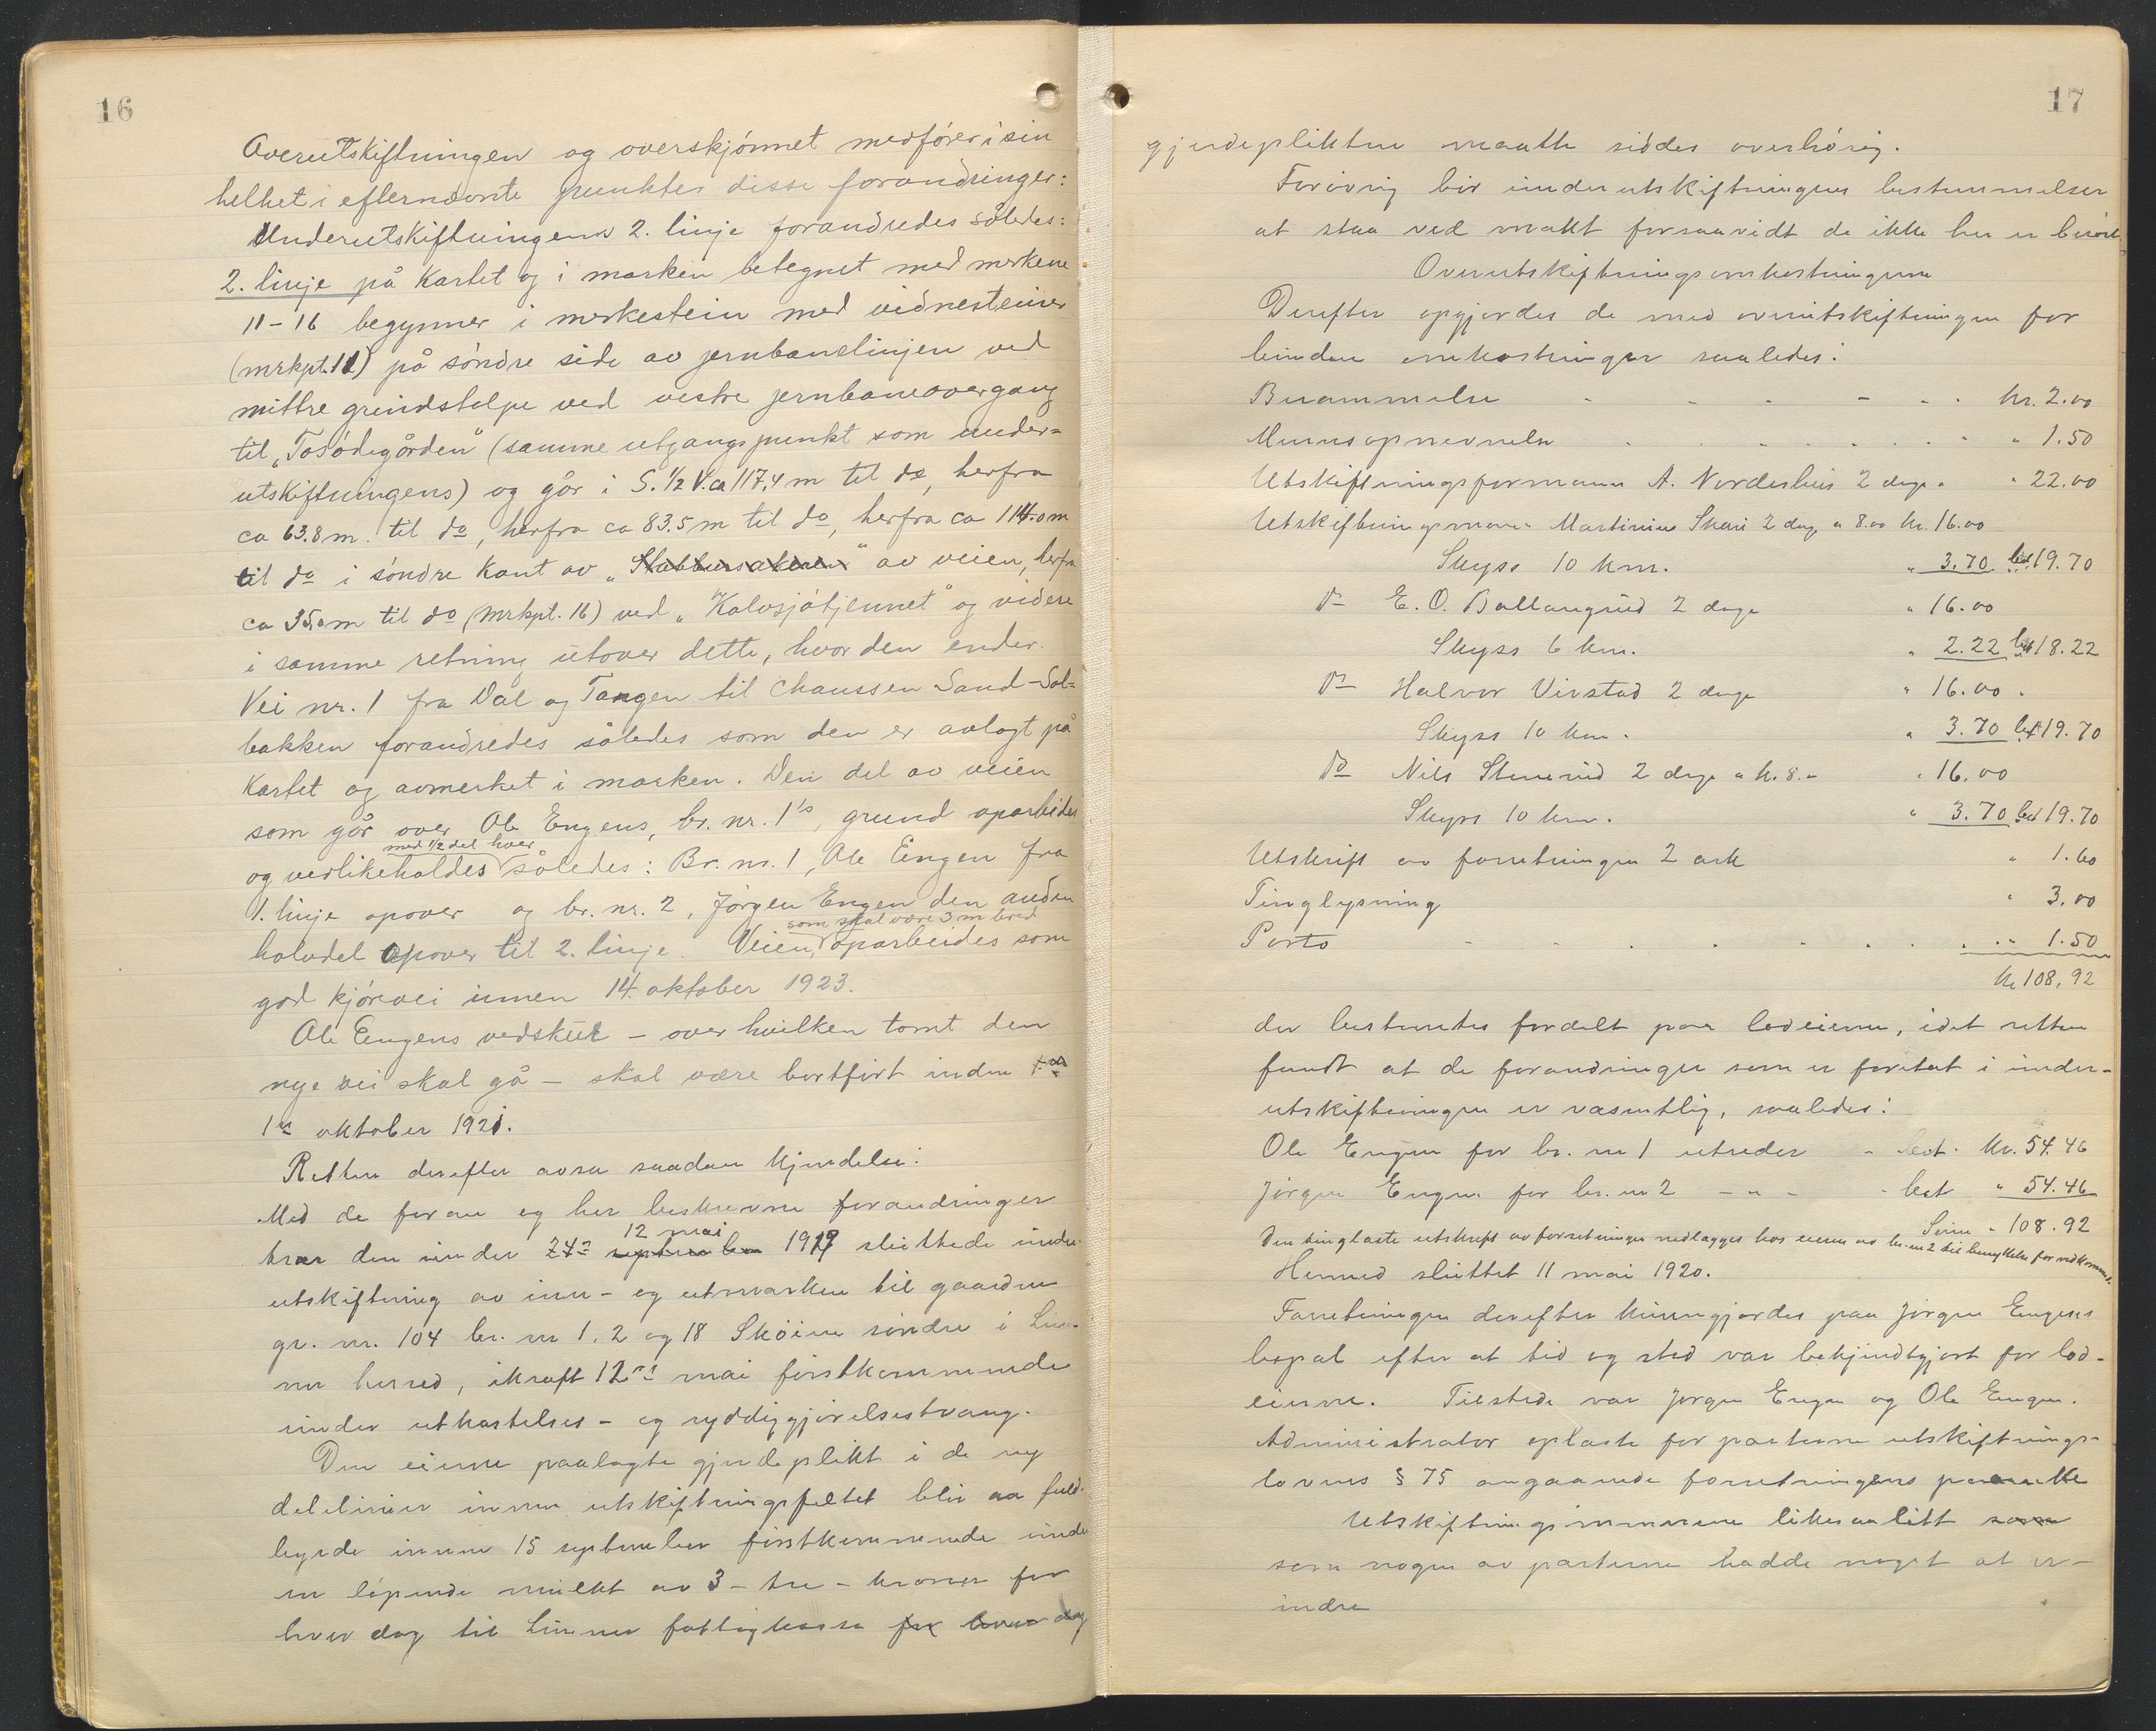 16
Overutskiftningen og overskjønnet medfører i sin
helhet i efternævnte punkter disse forandringer:
Underutskiftningens 2. linje forandredes således:
2. linje på kartet og i marken betegnet med merkene
11-16 begynner i merkestein med vidnesteiner
(mrkpt. 11) på søndre side av jernbanelinjen ved
mittre grindstolpe ved vestre jernbaneovergang
til „Tosødegården" (samme utgangspunkt som under=
utskiftningens) og går i S. 1/2 V. ca 117,4 m til do, herfra
ca 63.8 m. til do, herfra ca 83.5 m til do, herfra ca 114.0 m
til do i søndre kant av „Stabbursakeren" av veien, herfra
ca 35,0 m til do (mrkpt. 16) ved „Kalvsjøtjennet" og videre
i samme retning utover dette, hvor den ender.
Vei nr. 1 fra Dal og Tangen til chaussen Sand-Sol=
bakken forandredes således som den er avlagt på
kartet og avmerket i marken. Den del av veien
som går over Ole Engens, br. nr. 1's, grund oparbeides
med 1/2 del hver
og vedlikeholdes således: Br. nr. 1, Ole Engen fra
1. linje opover og br. nr. 2, Jørgen Engen den anden
som skal være 3 m bred
halvdel opover til 2. linje. Veien oparbeides som
god kjørevei innen 14. oktober 1923.
Ole Engens vedskut - over hvilken tomt den
nye vei skal gå - skal være bortført inden
1ste oktober 1921.
Retten derefter avsa saadan kjendelse:
Med de foran og her beskrevne forandringer
12 mai
trær den under 24de september 1919 sluttede under-
utskiftning av inn- og utmarken til gaarden
gr. nr. 104 br. nr 1, 2 og 18 Skøien søndre i Lun-
ner herred, ikraft 12te mai førstkommende
under utkastelses- og ryddiggjørelsestvang.
Den eierne paalagte gjerdeplikt i de ny
delelinier innen utskiftningsfeltet blir aa fuld-
byrde innen 15 september førstkommende under
en løpende mulkt av 3 - tre - kroner for
hver dag til Lunner fattigkasse for hver dag
17
gjerdeplikten maatte siddes overhørig.
Forøvrig blir underutskiftningens bestemmelser
at staa ved makt forsaavidt de ikke her er berørt
Overutskiftningsomkostningerne
Derefter opgjordes de med overutskiftningen for
bundne omkostninger saaledes:
Berammelse - - - - - - kr. 2.00
Mensopnevnelse " 1.50
Utskiftningsformann A. Nordeshus 2 dage " " 22.00
Utskiftningsmann Martinius Skari 2 dag. a 8.00 kr. 16.00
Skyss 10 km. " 3.70 bet 19.70
do E. O. Ballangrud 2 dage " 16.00
Skyss 6 km. " 2.22 bet 18.22
do Halvor Vivstad 2 dage " 16.00.
Skyss 10 km. " 3.70 bet 19.70
do Nils Stenerud 2 dage a kr. 8.- " 16.00
Skyss 10 km. " 3.70 bet 19.70
Utskrift av forretningen 2 ark " 1.60
Tinglysning " 3.00
Porto - - - - - " 1.50
kr 108,92
der bestemtes fordelt paa lodeierne, idet retten
fandt at de forandringer som er foretat i under-
utskiftningen er væsentlig, saaledes:
Ole Engen for br. nr 1 utreder - bet. kr. 54.46
Jørgen Engen for br. nr 2 - " - - bet " 54.46
Sum " 108.92
Den tinglæste utskrift av forretningen nedlægges hos eieren av br. nr 2 til benyttelse for vedkommende.
Hermed sluttet 11 mai 1920.
Forretningen derefter kunngjordes paa Jørgen Engens
bopæl efter at tid og sted var bekjendtgjort for lod-
eierne. Tilstede var Jørgen Engen og Ole Engen.
Administrator oplæste for parterne utskiftnings-
lovens § 75 angaaende forretningens paaanke
Utskiftningsmennene likesaalitt som
som nogen av parterne hadde noget at er-
indre